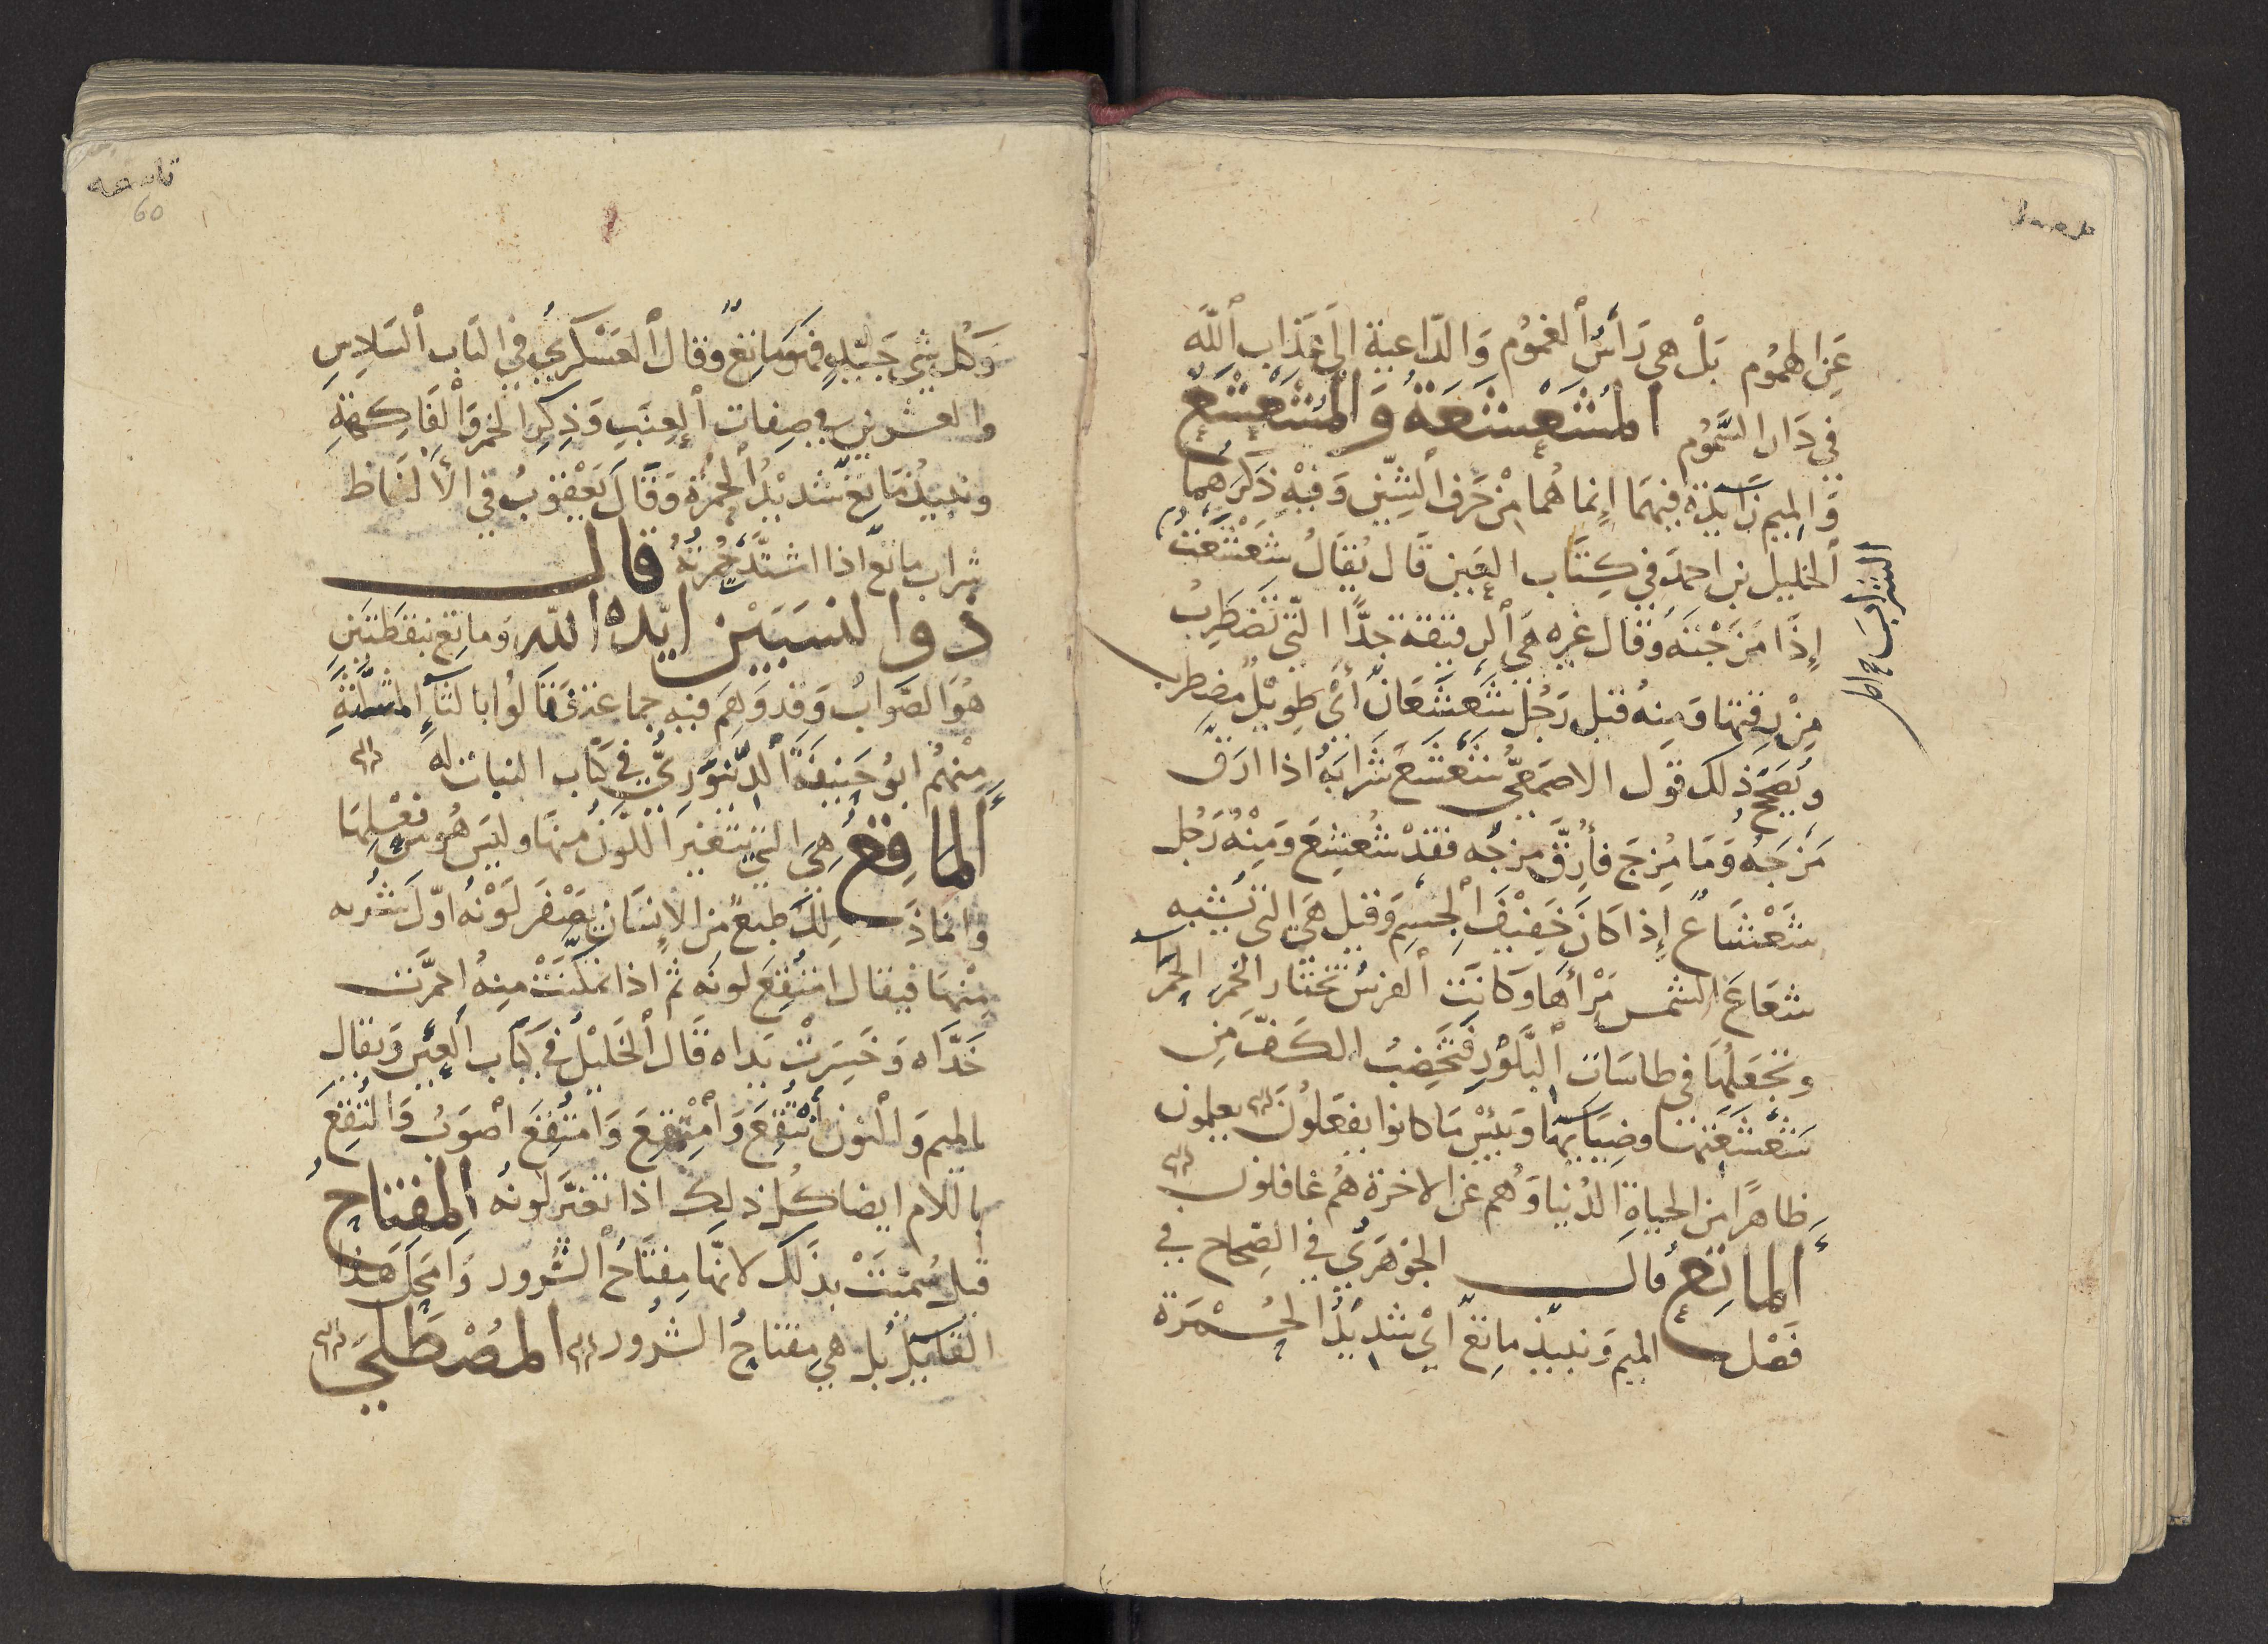 عَنِ الهمُوم بَلْ هي رَأسُ الغمُوم وَالدّاعية الى عَذابِ اللَّه
في دَار السَّمُوم المُشَعْشَعَةُ وَالمُشَعْشَعُ
وَالميم زَايدة فيهمَا إنما هُما مِنْ حَرف الشِّين وَفيْهِ ذكرَهُما
الخليل بن احمدَ في كِتَاب العَين قَال يُقَالُ شَعْشَعْتُ
الشراب
إذَا مَزَجْتَهُ وَقال غيره هي الرقيقة جدًّا التي تَضْطَرِبُ
مِنْ رِقتها وَمِنهُ قيل رَجُل شَعْشَعَان أيْ طويْل مضطرب
وَيُصَحِّحُ ذلك قول الاصمعيّ شَعْشَعَ شَرَابَهُ اذا ارَقَّ
مَزجَهُ وَمَا مُزِجَ فأرِقَّ مزجُه فقدْ شُعْشِعَ وَمِنْهُ رَجُل
شَعْشَاع إذا كانَ خَفِيْفَ الجسْمِ وَقيل هيَ التي تشبه
شعَاعَ الشمس مَرْأهَا وَكانَت الفرسُ تختار الخمرَ الحمرَا
وتَجْعَلُهَا في طاسَات البَلَّوْرِ فتَخْضِبُ الكَفّ مِن
شَعْشَعَتها وضِيَايهَا وَبِئْسَ مَا كانوا يفعَلُونَ يعلمون
ظاهرًا من الحياةِ الدُّنيا وَهُم عن الاخرة هُم غافلون
الماتِعُ قال الجَوْهَرَيُّ في الصِّحاح في
فَصْل الميم وَنبيذ ماتِعٌ ايْ شديْدُ الحُمْرَة
60
وَكل شي جَيّدٍ فهوَ مَاتِعٌ وقال العَسْكَريُّ في البَاب السَادِس
والعشرين في صِفات العِنَبِ وَذِكرِ الخمر وَالفَاكِهَةِ
ونبيذ مَاتِع شديْدُ الحُمْرَة وَقَالَ يَعْقوبُ في الألفَاظ
شراب ماتعٌ اذا اشتدَّ حُمْرَتُهُ قال
ذوا لنسَبَيْن ايّده الله وَماتع بنقطتَينِ
هُوَ الصَّوابُ وَقد وَهَم فيه جماعة فقالُوا بالثآءِ المثلَّثَةِ
مِنْهُم ابُو حَنِيفَةَ الدِّيْنَوَرِيُّ في كتاب النبات له
المَاقِعُ هِيَ التي يَتَغيرُ اللَّوْنُ منهَا وليسَ هُو مِن فعْلِهَا
وانماذَلِكَ طبعٌ مِن الإنسَانِ يَصْفرّ لَوْنُه اوّلَ شُربه
مِنْهَا فيقال امْتُقِعَ لونُه ثم اذا تمكَّنَتْ منهُ احمَرَّت
خَدَّاه وَخَسِرَتْ يَداه قَال الخَلِيْلُ في كتاب العَيْنِ وَيقال
بالميم وَالنون انْتُقِعَ وَامْتُقِعَ وَامْتُقِعَ اصْوَبُ وَالتُقِعَ
باللام ايضا كُلُّ ذلك اذا تغيَّرَ لونُه المِفتاحُ
قيلَ سُمِّيَتْ بذَلكَ لانّها مِفتَاحُ السُّرور وَامحلَ هَذا
القايلُ بل هي مفتاحُ الشرُور المُصْطَلَى